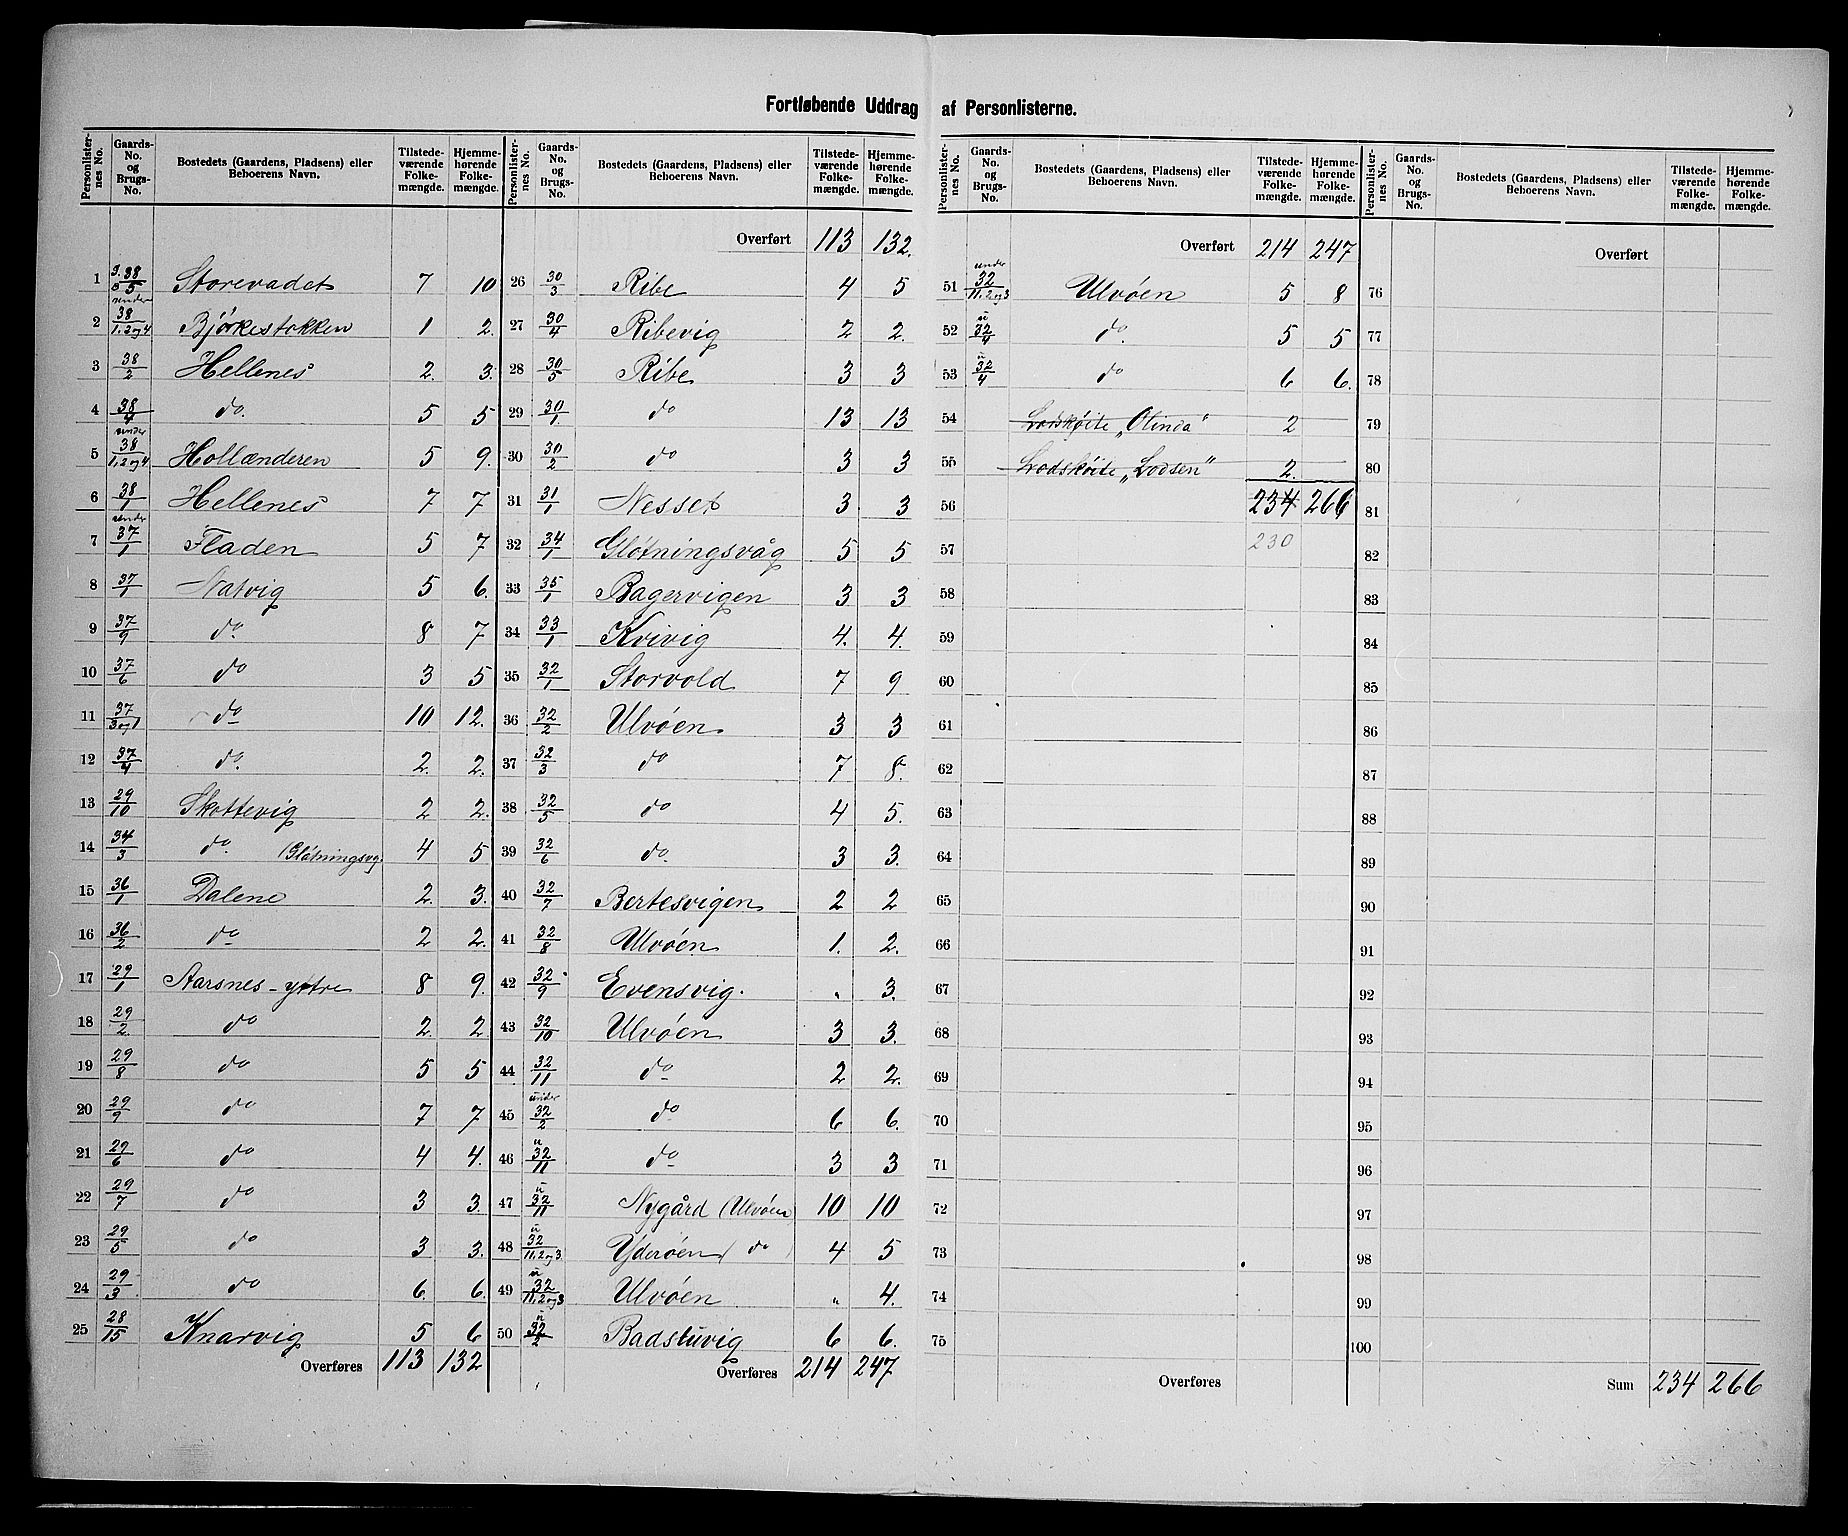 Fortløbende Uddrag af Personlisterne.
Personlister-nes No. | Gaards-No. og Brugs-No. | Bostedets (Gaardens, Pladsens) eller Beboerens Navn. | Tilstede-værende Folke-mængde. | Hjemme-hørende Folke-mængde.
1 38/5 Storevadet 7 10
2 under 38/1.2og4 Bjørkestokken 1 2.
3 38/2 Hellenes 2. 3.
4 38/4 do. 5 5
5 under 38/1.2og4 Hollænderen 5 9.
6 38/1 Hellenes 7 7
7 under 37/1 Fladen 5 7
8 37/1 Natvig 5 6.
9 37/9 do. 8 7
10 37/6 do 3 5
11 37/3og1 do 10 12.
12 37/4 do. 2. 2.
13 29/10 Skottevig 2 2.
14 34/3 do. (Gløtningsvg. 4 5
15 36/1 Dalene 2. 3.
16 36/2 do 2 2.
17 29/1 Aarsnes-yttre 8 9.
18 29/2. do 2. 2.
19 29/8 do 5 5
20 29/9 do 7 7
21 29/6 do 4 4.
22 29/7 do 3 3.
23 29/5 do 3 3.
24 29/3 do 6. 6.
25 28/15 Knarvig 5 6
Overføres 113 132
Personlister-nes No. | Gaards-No. og Brugs-No. | Bostedets (Gaardens, Pladsens) eller Beboerens Navn. | Tilstede-værende Folke-mængde. | Hjemme-hørende Folke-mængde.
Overført 113 132.
26 30/3 Ribe 4 5
27 30/4 Ribevig 2 2.
28 30/5 Ribe 3 3
29 30/1. do 13 13
30 30/2 do 3 3
31 31/1 Nesset 3. 3
32 34/1 Gløtningsvåg 5 5
33 35/1 Bagervigen 3 3
34 33/1 Kvivig 4. 4.
35 32/1 Storvold 7 9
36 32/2 Ulvøen 3 3
37 32/3 do 7 8.
38 32/5 do 4 5.
39 32/6 do. 3 3.
40 32/7 Bertesvigen 2 2
41 32/8 Ulvøen 1. 2.
42 32/9 Evensvig. " 3.
43 32/10 Ulvøen 3 3.
44 32/11 do 2 2.
45 under 32/2 do 6 6.
46 u 32/11 do 3 3
47 u 32/11 Nygård (Ulvøen 10 10
48 u 32/11,2og3 Yderøen ( do ) 4 5
49 u 32/11,2og3 Ulvøen " 4.
50 u 32/2 Badstuvig 6 6.
Overføres 214 247
Personlister-nes No. | Gaards-No. og Brugs-No. | Bostedets (Gaardens, Pladsens) eller Beboerens Navn. | Tilstede-værende Folke-mængde. | Hjemme-hørende Folke-mængde.
Overført 214 247
51 under 32/11,2og3 Ulvøen 5 8
52 u 32/4 do. 5 5
53 u 32/4 do 6 6.
54 Lodskøite „Olinda" 2
55 Lodskøite „Lodsen" 2.
56 234 266
57 230
58
59
60
61
62
63
64
65
66
67
68
69
70
71
72
73
74
75
Overføres
Personlister-nes No. | Gaards-No. og Brugs-No. | Bostedets (Gaardens, Pladsens) eller Beboerens Navn. | Tilstede-værende Folke-mængde. | Hjemme-hørende Folke-mængde.
Overført
76
77
78
79
80
81
82
83
84
85
86
87
88
89
90
91
92
93
94
95
96
97
98
99
100
Sum 234 266